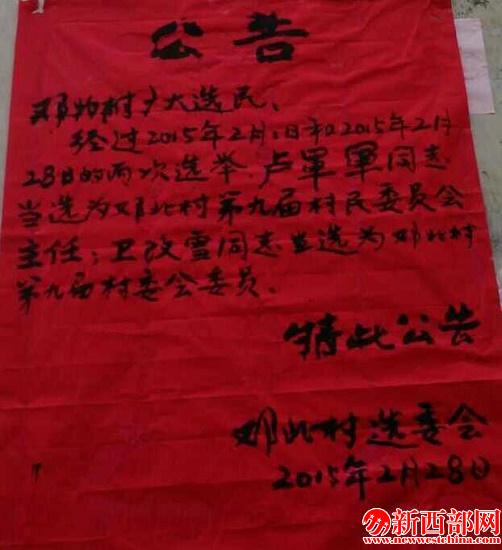 公告
邓北村广大选民、
经过2015年2月1日和2015年2月
28日的两次选举,卢军军同志
当选为邓北村第九届村民委员会
主任;卫改雪同志当选为邓北村
第九届村委会委员。
特此公告
邓北村选委会
2015年2月28日
新西部网
www.newwestchina.com